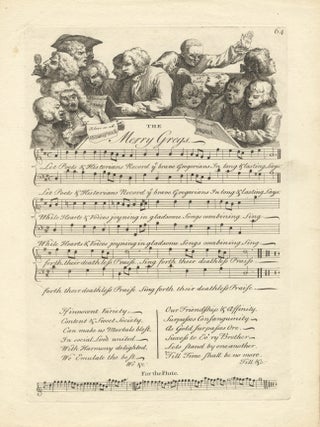 64
THE
Merry Gregs
Let Poets & Historians Record yͤ brave Gregorians In long & lasting Lays
Let Poets & Historians Record yͤ brave Gregorians In long & lasting Lays
While Hearts & Voices joyning in gladsome Songs combining Sing
While Hearts & Voices joyning in gladsome Songs combining Sing
forth their deathless Praise Sing forth their deathless Praise
forth their deathless Praise Sing forth their deathless Praise.
If innocent Variety,
Content & Sweet Society,
Can make us Mortals blest.
In social Love united
With Harmony delighted,
We Emulate the best.
We &c.
Our Friendship & Affinity.
Surpasses Consanguinity
As Gold surpasses Ore.
Success to Ev'ry Brother
Let's stand by one another.
Till Time shall be no more.
Till &c.
For the Flute.